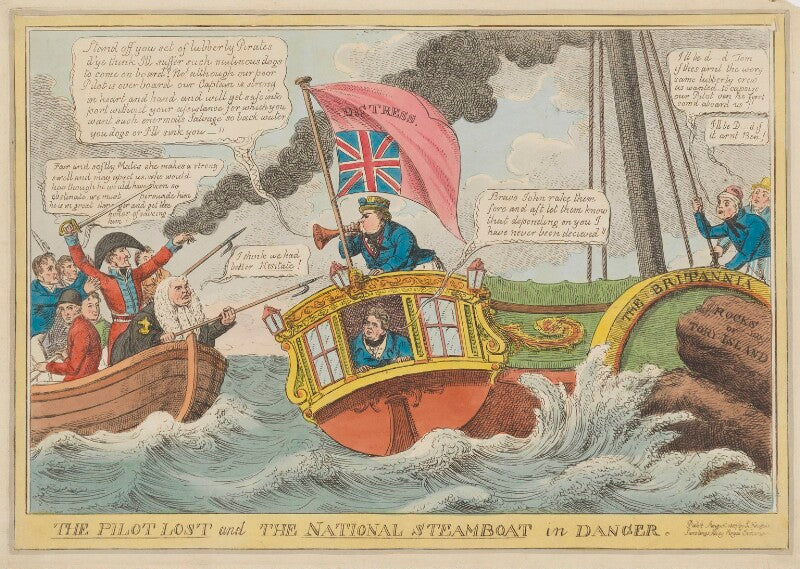 Stand off you set of lubberly Pirates
d'ye think I'll suffer such mutinous dogs
to come on board? No! although our poor
Pilot is overboard our Captain is strong
in heart and hand and will get safe into
port without your assistance for which you
want such enormous Salvage so back water
you dogs or I'll sink you—"
Fair and softly Mates she makes a strong
swell and may upset us, who would
hope though he would have been so
obstinate we must persuade him
he is in great danger and get the
honor of saving
him
I think we had
better Hesitate!
DISTRESS.
Bravo John rake them
fore and aft let them know
that depending on you I
have never been decieved"
I'll be d—d Tom
if this arnt the very
same lubberly crew
as wanted to capsize
our Pilot ven he first
com'd aboard us"
I'll be D—d if
it arnt Ben!
THE BRITANNIA
ROCKS
TORY ISLAND
THE PILOT LOST and THE NATIONAL STEAMBOAT in DANGER.